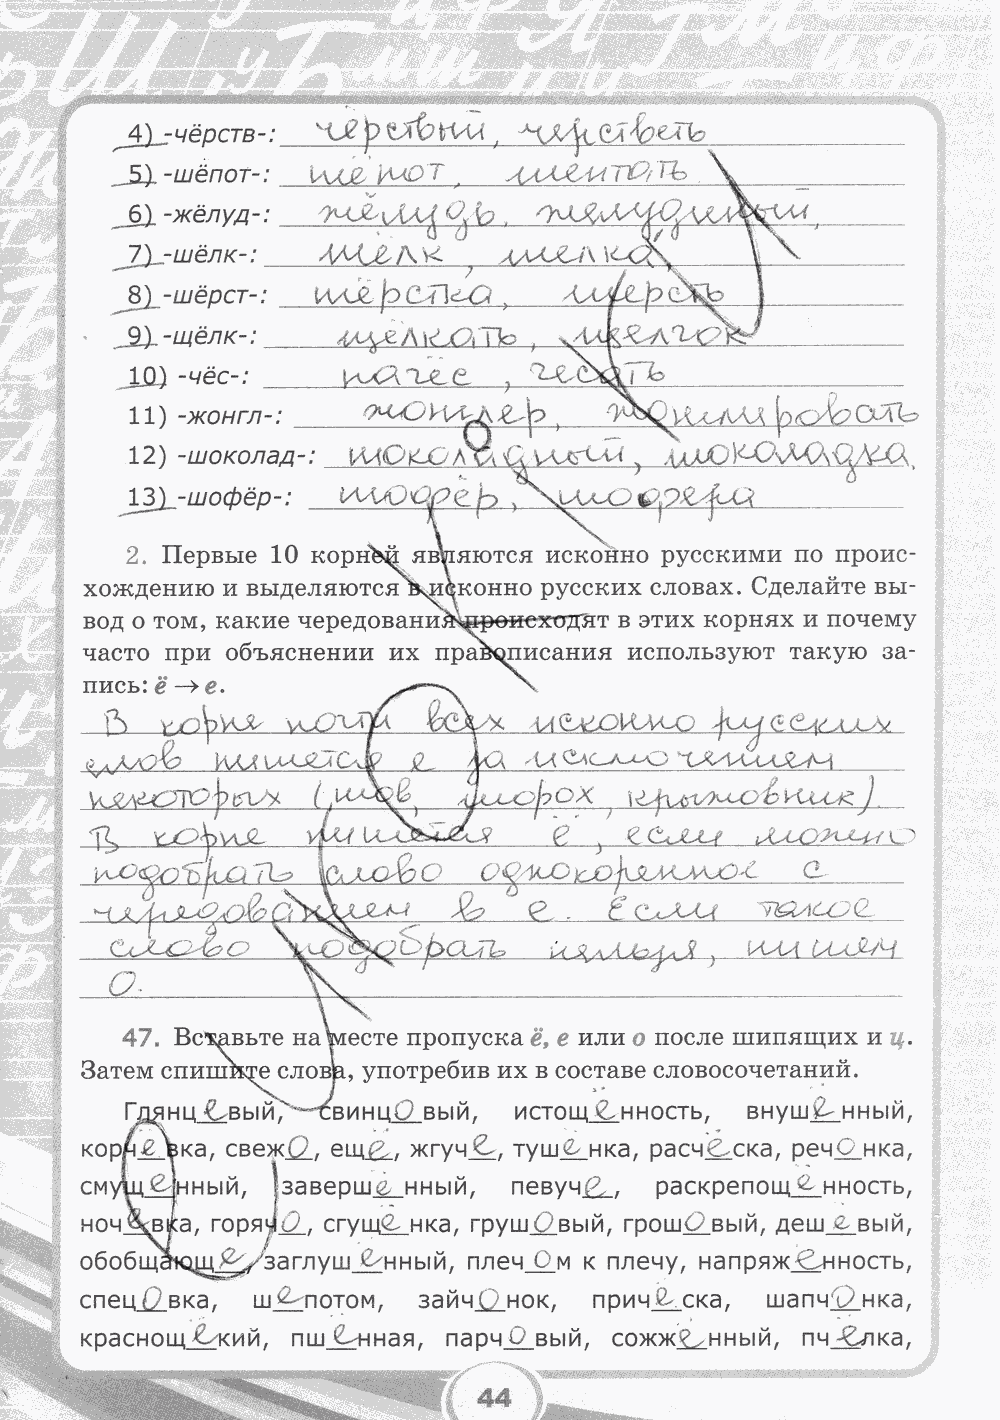 4) -чёрств-: чёрствый, черстветь
5) -шёпот-: шёпот, шептать
6) -жёлуд-: жёлудь, желудиный,
7) -шёлк-: шёлк, шелка,
8) -шёрст-: шёрстка, шерсть
9) -щёлк-: щёлкать, щелчок
10) -чёс-: начёс, чесать
11) -жонгл-: жонглёр, жонглировать
12) -шоколад-: шоколадный, шоколадка.
13) -шофёр-: шофёр, шофера
2. Первые 10 корней являются исконно русскими по проис-
хождению и выделяются в исконно русских словах. Сделайте вы-
вод о том, какие чередования происходят в этих корнях и почему
часто при объяснении их правописания используют такую за-
пись: ё → е.
В корне почти всех исконно русских
слов пишется е за исключением
некоторых (шов, шорох, крыжовник).
В корне пишется ё, если можно
подобрать слово однокоренное с
чередованием в е. Если такое
слово подобрать нельзя, пишем
О.
47. Вставьте на месте пропуска ё, е или о после шипящих и ц.
Затем спишите слова, употребив их в составе словосочетаний.
Глянцевый, свинцовый, истощённость, внушённый,
корчёвка, свежо, ещё, жгуче, тушёнка, расчёска, речонка,
смущённый, завершённый, певуче, раскрепощённость,
ночёвка, горячо, сгущёнка, грушовый, грошовый, дешёвый,
обобщающе, заглушённый, плечом к плечу, напряжённость,
спецовка, шёпотом, зайчонок, причёска, шапчонка,
краснощёкий, пшённая, парчовый, сожжённый, пчёлка,
44